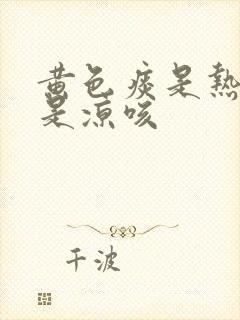 黄色痰是熱
是凉咳
千波